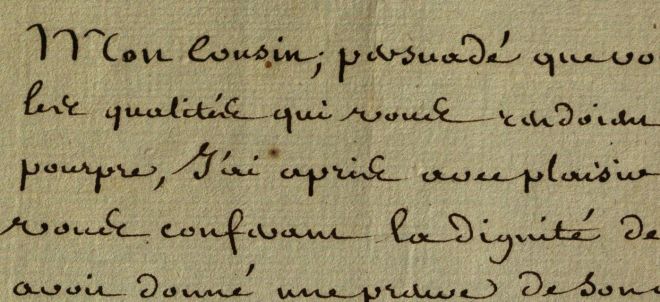 Mon Cousin, persuadé que vo
les qualités qui vous rendoien
pourpre, J'ai apris avec plaisir
vous conférant la dignité de
avoir donné une preuve de son